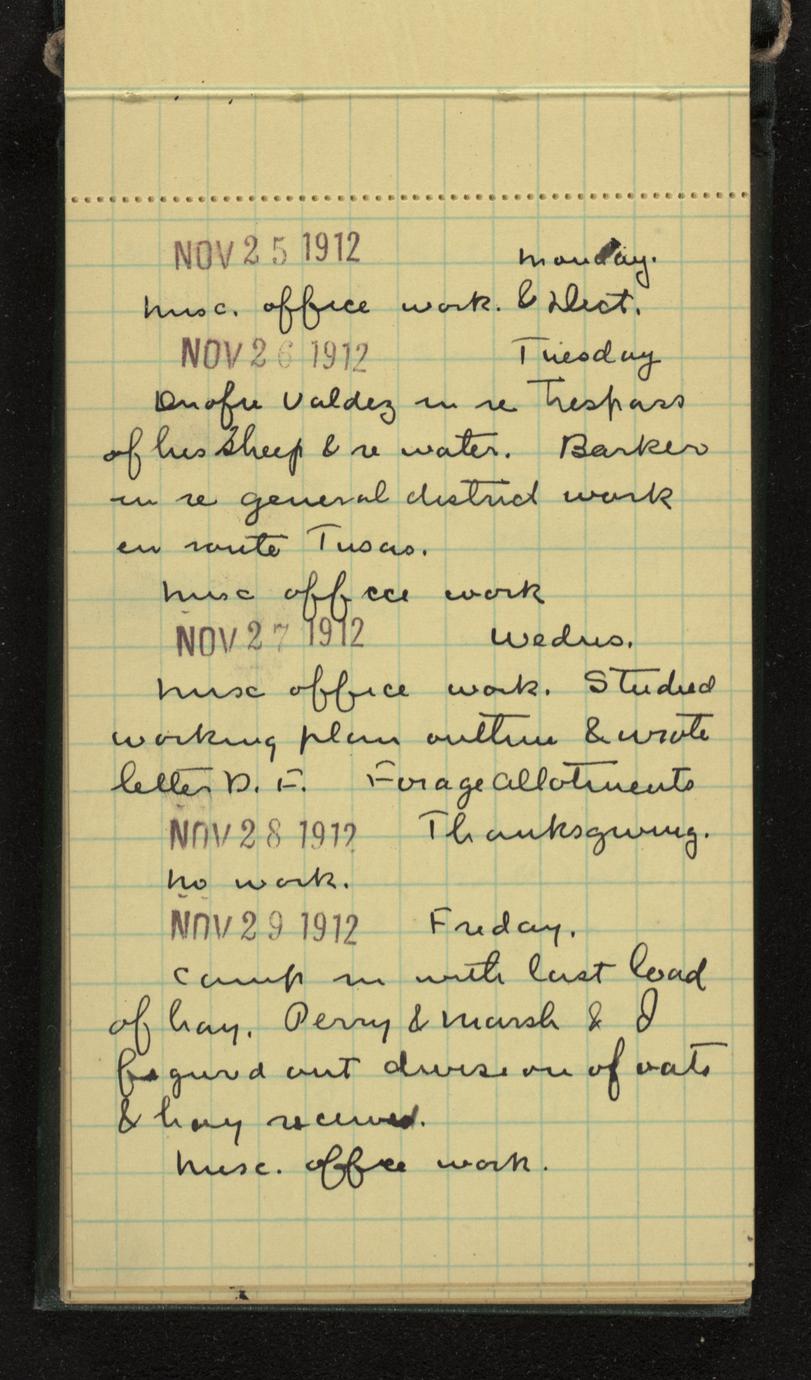 NOV 25 1912 Monday.
Misc. office work. & Dict.
NOV 26 1912 Tuesday
Onofre Valdez in re Trespass
of his sheep & re water. Barker
in re general district work
en route Tusas.
Misc office work
NOV 27 1912 Wednes.
Misc office work. Studied
working plan outline & wrote
letter D. F. Forage allotments
NOV 28 1912 Thanksgiving.
No work.
NOV 29 1912 Friday.
Camp in with last load
of hay. Perry & Marsh & I
figurd out division of oats
& hay received.
Misc. office work.